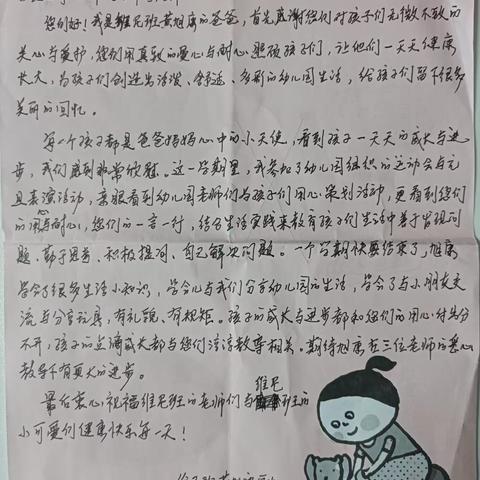 您们好！我是维尼班黄旭康的爸爸，首先感谢您们对孩子们无微不致的
关心与爱护，您们用真致的爱心与耐心照顾孩子们，让他们一天天健康
长大，为孩子们创造出活泼、舒适、多彩的幼儿园生活，给孩子们留下很多
美丽的回忆。
每一个孩子都是爸爸妈妈心中的小天使，看到孩子一天天的成长与进
步，我们感到非常欣慰。这一学期里，我参加了幼儿园组织的运动会与元
旦表演活动，亲眼看到幼儿园老师们与孩子们用心策划活动，更看到您们
的用心与耐心，您们的一言一行，结合生活实践来教育孩子们生活中善于发现问
题、勤于思考、积极提问、自己解决问题。一个学期快要结束了，旭康
学会了很多生活小知识，学会与我们分享幼儿园的生活，学会了与小朋友交
流与分享玩具，有礼貌、有规矩。孩子的成长与进步都和您们的用心付出分
不开，孩子的点滴成长都与您们谆谆教导相关。期待旭康在三位老师的悉心
教导下有更大的进步。
最后衷心祝福维尼班的老师们与维尼班的
小可爱们健康快乐每一天！